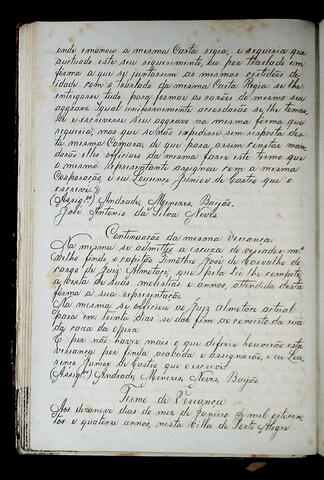 onde emanou a mesma Carta regia, e requeria que
autuado este seu requerimento, ou por traslado em
forma a que se juntassem as mesmas certidões de
idade com o traslado da mesma Carta Regia se lhe
entregasse tudo para formar as razões do mesmo seu
aggravo. Igual uniformemente accordarão se lhe tomas
se e escrevesse seu aggravo na mesma forma que
requeria, mas que se não expedisse sem resposta des
ta mesma Camara; de que para assim constar man
darão elles officiaes da mesma fazer este termo que
o mesmo Representante assignou com a mesma
Corporação, e eu Lourenço Junior de Castro que o
escrevi.
(Assign.os) Andrade, Menezes, Bayão,
José Antonio da Silva Neves.
Continuação da mesma Vereança.
Na mesma se admittio a escuza de vereador m.s
velho findo o capitão Timotheo José de Carvalho do
cargo de Juiz Almotacé, que pela Lei lhe competia
a vista de suas molestias e annos, attendida desta
forma a sua representação.
Na mesma se officiou ao Juiz Almotacé actual
para em trinta dias se dar fim ao concerto da rua
da caza da opera.
E por não haver mais o que deferir houverão esta
vereança por finda, acabada e assignarão, e eu Lou
renço Junior de Castro que o escrevi
(Assign.os) Andrade, Menezes, Neves, Bayão.
Termo de Vereança
Aos dezanove dias do mez de Janeiro de mil oitocen
tos e quatorze annos, nesta Villa de Porto Alegre